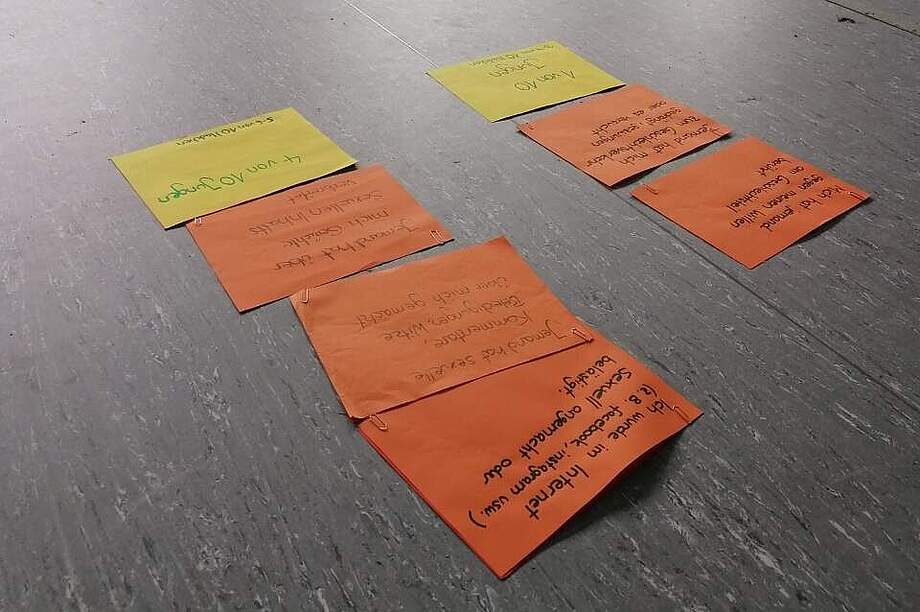 4 von 10 Jungen
von 10 Mädchen
Jemand hat über
mich Gerüchte
sexuellen Inhalts
verbreitet
Jemand hat sexuelle
Kommentare,
Beleidigungen, Witze
über mich gemacht
Ich wurde im Internet
(z.B. facebook, instagram usw.)
sexuell angemacht oder
belästigt.
1 von 10
Jungen
von 10 Mädchen
Jemand hat mich
zum Geschlechtsverkehr
gedrängt, gezwungen
oder es versucht
Mich hat jemand
gegen meinen Willen
am Geschlechtsteil
berührt